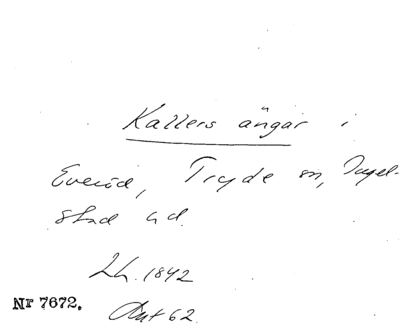 Kallers ängar i
Everöd, Tryde sn, Ingel-
stad hd.
Lh. 1842
Avt 62
Nr 7672.